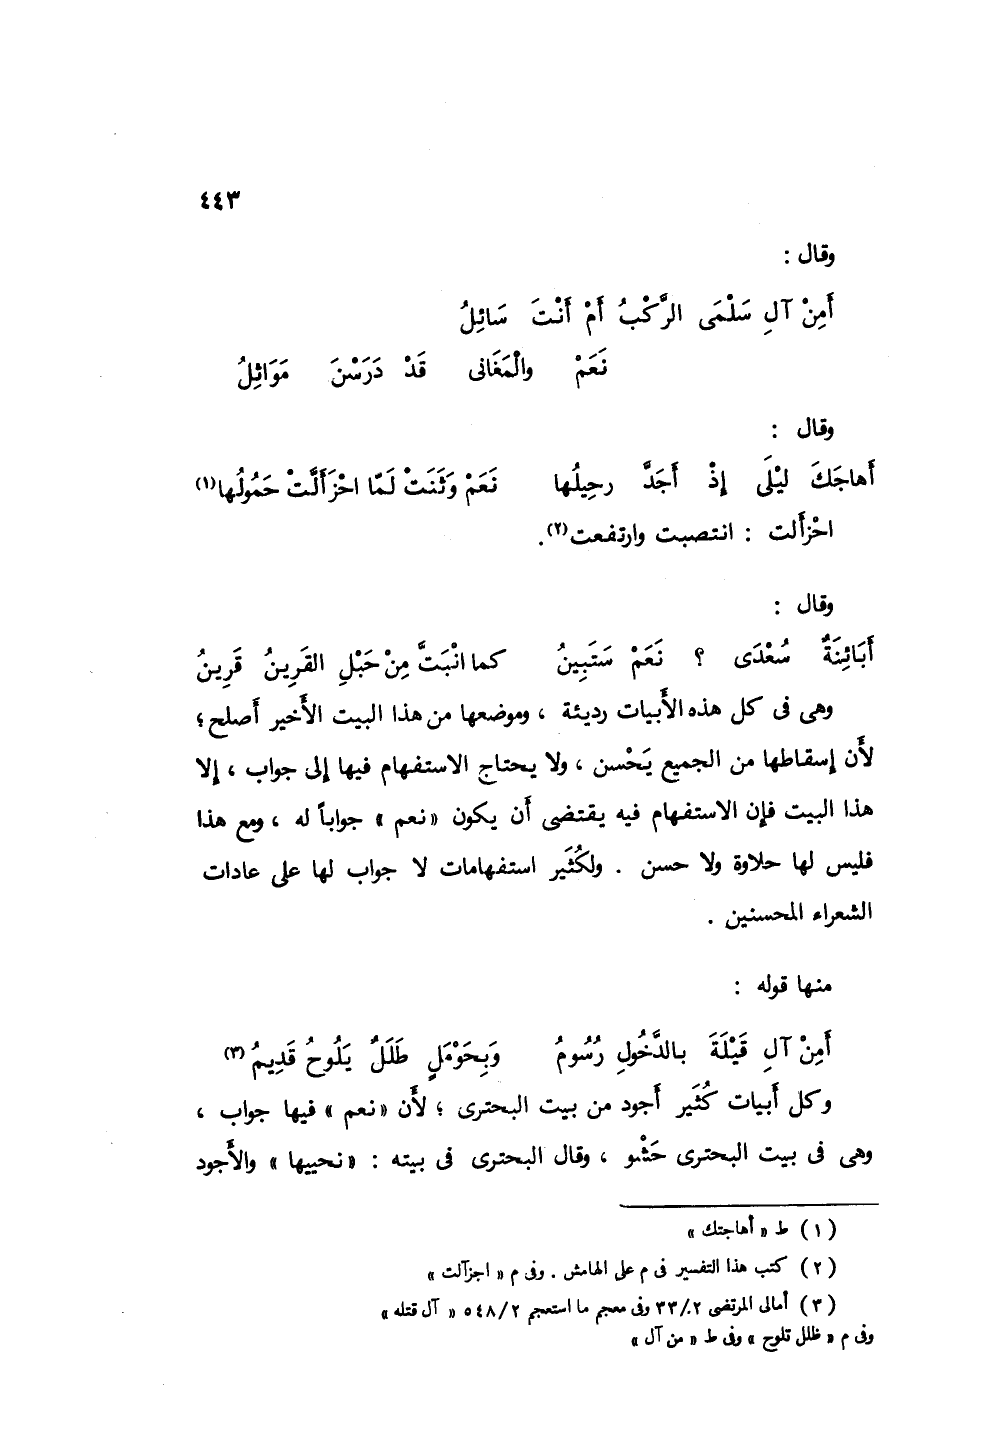 ٤٤٣
وقال :
أَمِنْ آلِ سَلْمَى الرَّكْبُ أَمْ أَنْتَ سَائِلُ
نَعَمْ والْمَغَانى قَدْ دَرَسْنَ مَوَاثِلُ
وقال :
أَهاجَكَ لَيْلَى إِذْ أَجَدَّ رحِيلُها نَعَمْ وَثَنَتْ لَمّا احْزَأَلَّتْ حَمُولُها(١)
احْزأَلت : انتصبت وارتفعت(٢).
وقال :
أَبَائِنَةٌ سُعْدَى ؟ نَعَمْ سَتَبِينُ كما انْبَتَّ مِنْ حَبْلِ القَرِينُ قَرِينُ
وهى فى كل هذه الأَبيات رديئة ، وموضعها من هذا البيت الأَخير أَصلح ؛
لأَن إسقاطها من الجميع يَحْسن ، ولا يحتاج الاستفهام فيها إلى جواب ، إلا
هذا البيت فإن الاستفهام فيه يقتضى أَن يكون « نعم » جواباً له ، ومع هذا
فليس لها حلاوة ولا حسن . ولكُثَير استفهامات لا جواب لها على عادات
الشعراء المحسنين .
منها قوله :
أَمِنْ آلِ قَيْلَةَ بالدَّخُولِ رُسُومُ وَبِحَوْمَلٍ طَلَلٌ يَلُوحُ قَدِيمُ(٣)
وكل أَبيات كُثَير أَجود من بيت البحترى ؛ لأَن « نعم » فيها جواب ،
وهى فى بيت البحترى حَشْو ، وقال البحترى فى بيته : « نحييها » والأَجود
(١) ط « أهاجتك »
(٢) كتب هذا التفسير فى م على الهامش . وفى م « اجزآلت »
(٣) أمالى المرتضى ٣٣/٢ وفى معجم ما استعجم ٥٤٨/٢ « آل قتله »
وفى م « ظلل تلوح » وفى ط « من آل »